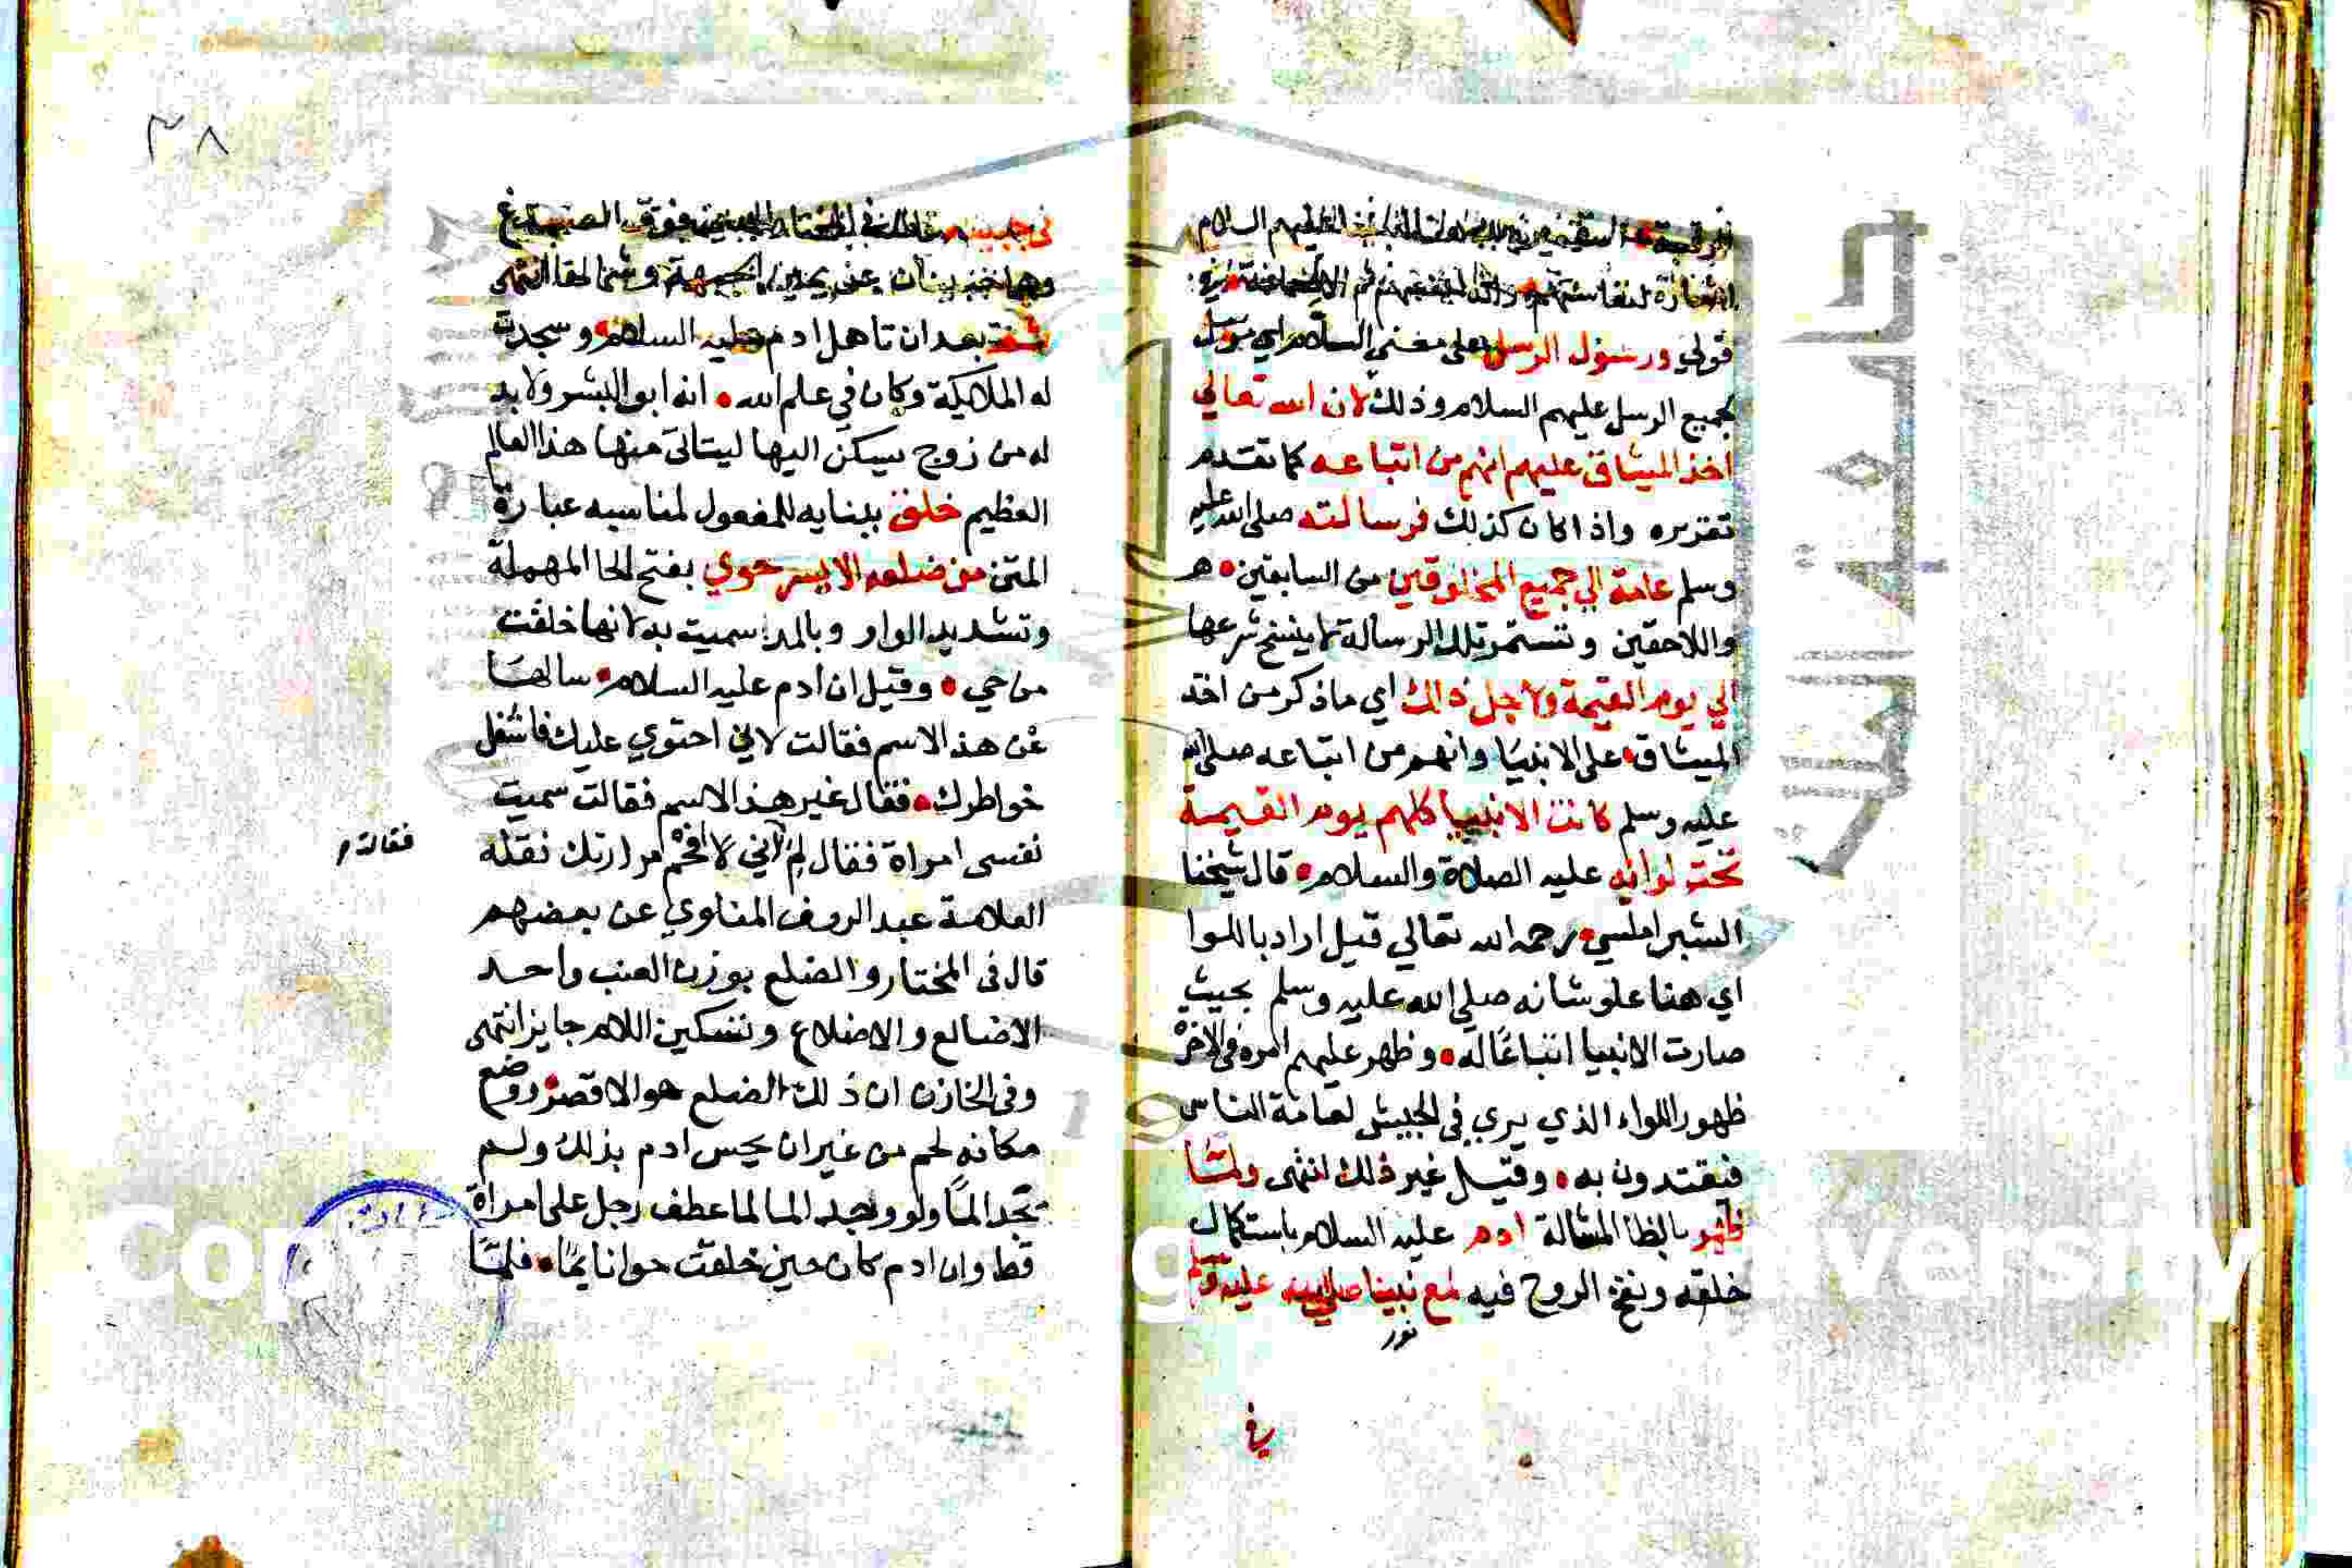 عليهم السلام
قولي ورسول الرسل على معني السلام اي مرسل
لجميع الرسل عليهم السلام وذلك لان الله تعالي
اخذ الميثاق عليهم انهم من اتباعه كما تقدم
تقريره واذا كان كذلك فرسالته صلى الله عليه
وسلم عامة الي جميع المخلوقين من السابقين ه
واللاحقين وتستمر تلك الرسالة لا ينسخ شرعها
الي يوم القيمة ولاجل ذالك اي ماذكر من اخذ
الميثاق على الانبيا وانهم من اتباعه صلى الله
عليه وسلم كانت الانبيا كلهم يوم القيمة
تحت لوائه عليه الصلاة والسلام قال شيخنا
الشبراملسي رحمه الله تعالي قيل اراد باللوا
اي هنا علو شانه صلي الله عليه وسلم بحيث
صارت الانبيا اتباعًا له وظهر عليهم امره في الاخرة
ظهور اللواء الذي يري في الجيش لعامة الناس
فيقتدون به وقيل غير ذلك انتهى ولمّا
ظهر بالظا المشالة ادم عليه السلام باستكمال
خلقه ونفخ الروح فيه لمع نبينا صلى الله عليه وسلم
نور
في
٣٨
في جبينه فوق الصدغ
وهما جبينان عن يمين الجبهة وشمالها انتهى
بعد ان تاهل ادم عليه السلام وسجدت
له الملائكة وكان في علم الله انه ابو البشر ولا بد
له من زوج يسكن اليها ليتاتى منها هذا العالم
العظيم خلقت ببنايه للمفعول لمناسبه عبارة
المتن من ضلعه الايسر حوي بفتح الحا المهملة
وتشديد الواو وبالمد سميت به لانها خلقت
من حي وقيل ان ادم عليه السلام سالها
عن هذا الاسم فقالت لاني احتوي عليك فاشغل
خواطرك فقال غير هذا الاسم فقالت سميت
نفسى امراة فقال لم اني لا مرارتك نقله
فقالت
العلامة عبد الروف المناوي عن بعضهم
قال في المختار والضلع بوزن العنب واحد
الاضالع والاضلاع وتسكين اللام جايز انتهى
وفي الخازن ان ذلك الضلع هو الاقصر ووضع
مكانه لحم من غير ان يحس ادم بذلك ولم
تجد المًا ولو وجد الما لما عطف رجل على امراة
قط وان ادم كان حين خلقت حوا نايمًا فلمّا